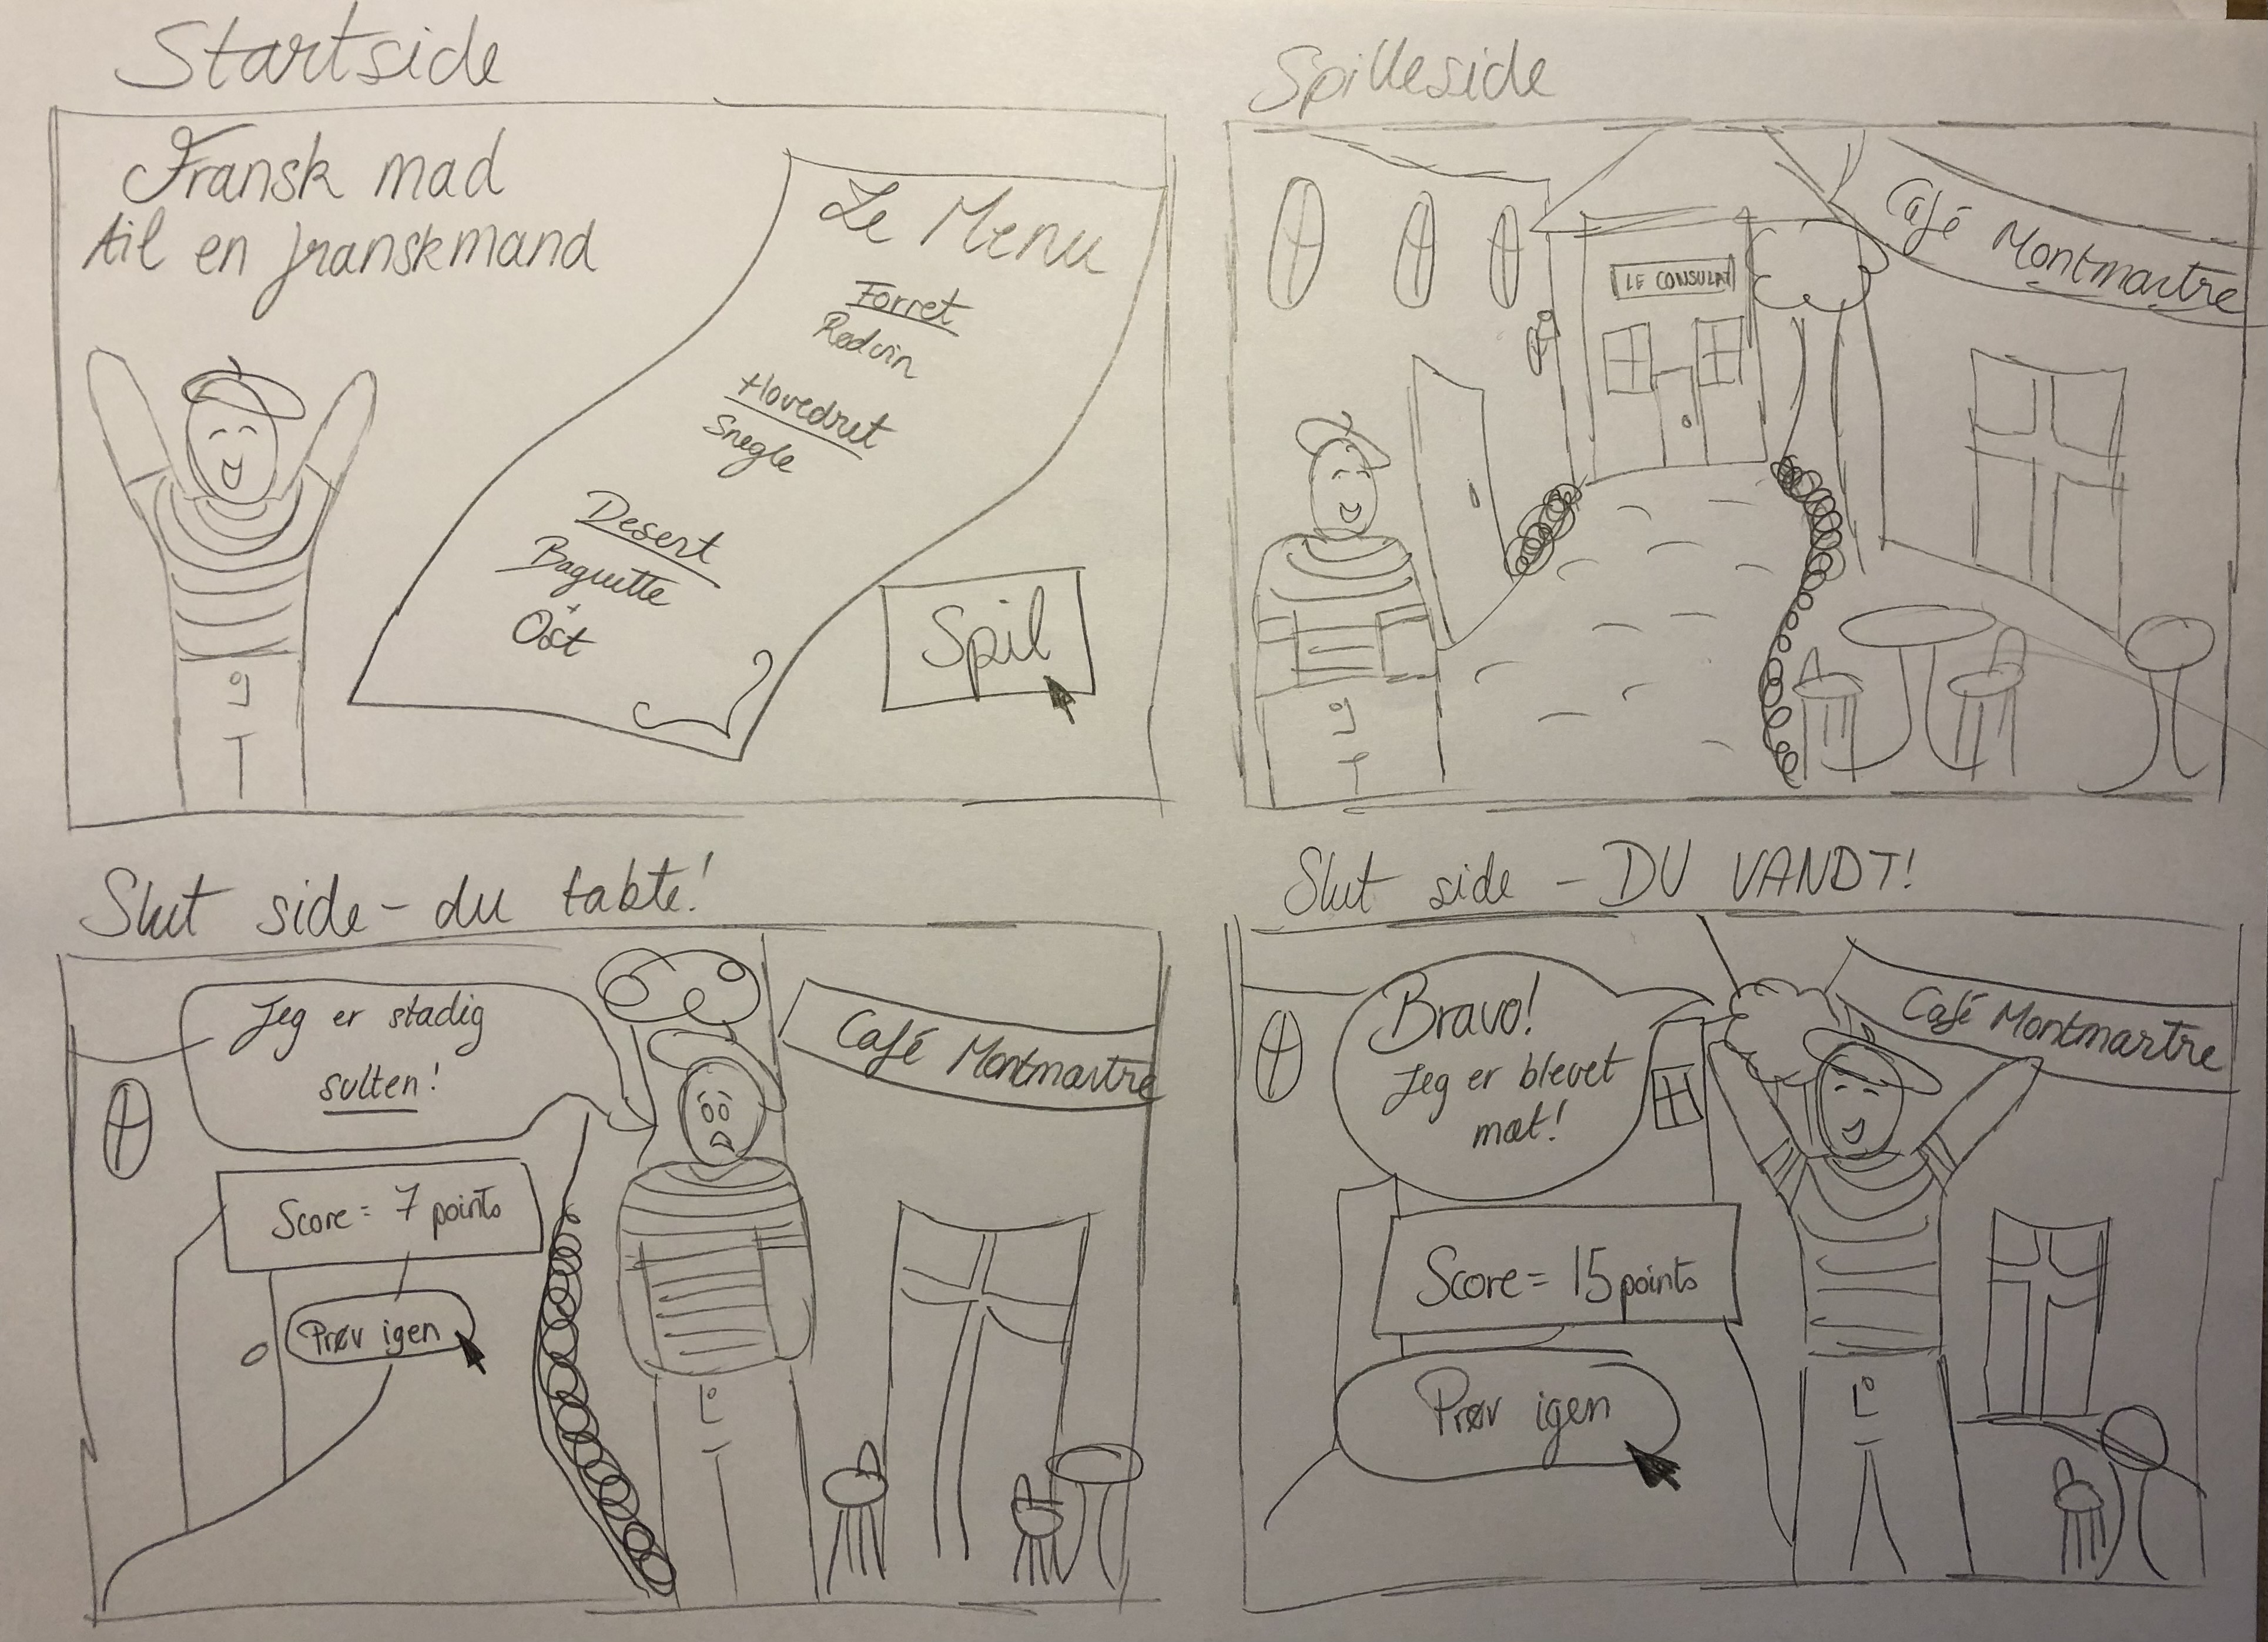 Startside
Fransk mad
til en franskmand
Le Menu
Forret
Rødvin
Hovedret
Snegle
Desert
Baguette
+
Ost
Spil
Spilleside
LE CONSULAT
Café Montmartre
Slut side - du tabte!
Jeg er stadig
sulten!
Café Montmartre
Score = 7 points
Prøv igen
Slut side - DU VANDT!
Bravo!
Jeg er blevet
mæt!
Café Montmartre
Score = 15 points
Prøv igen